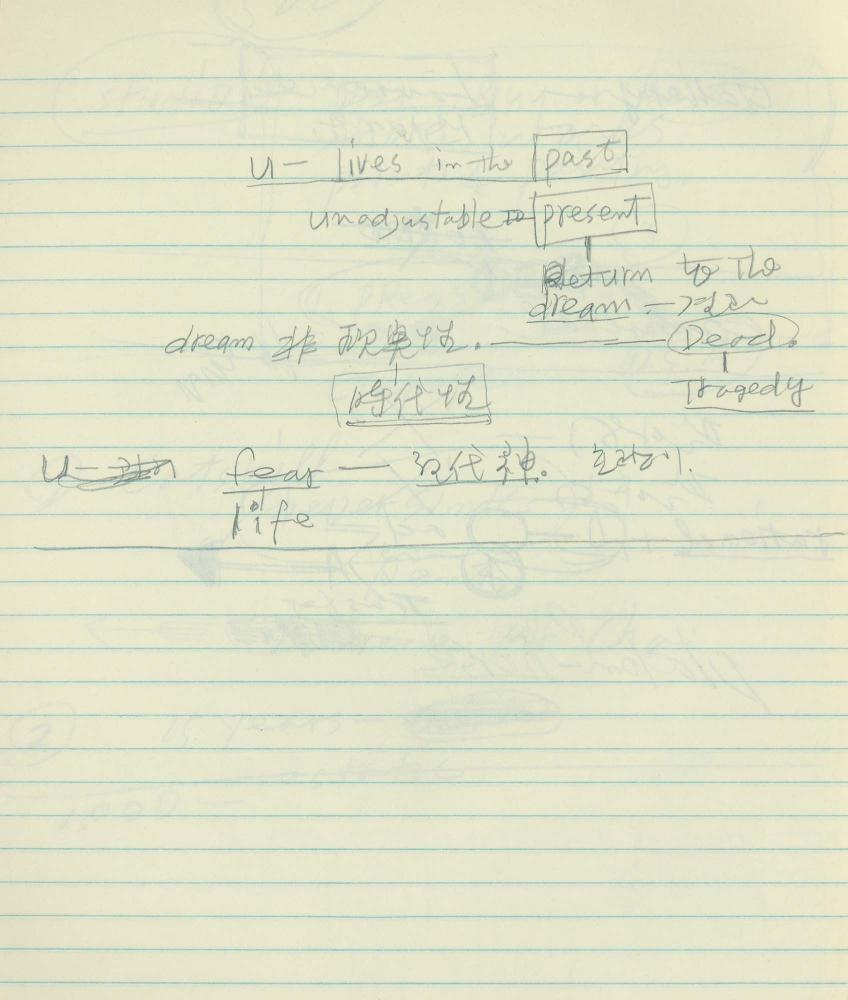 U— lives in the past
unadjustable to present
Return to the
dream — 결국
dream 非現実性. — Dead.
時代性 Tragedy
U— fear —
life